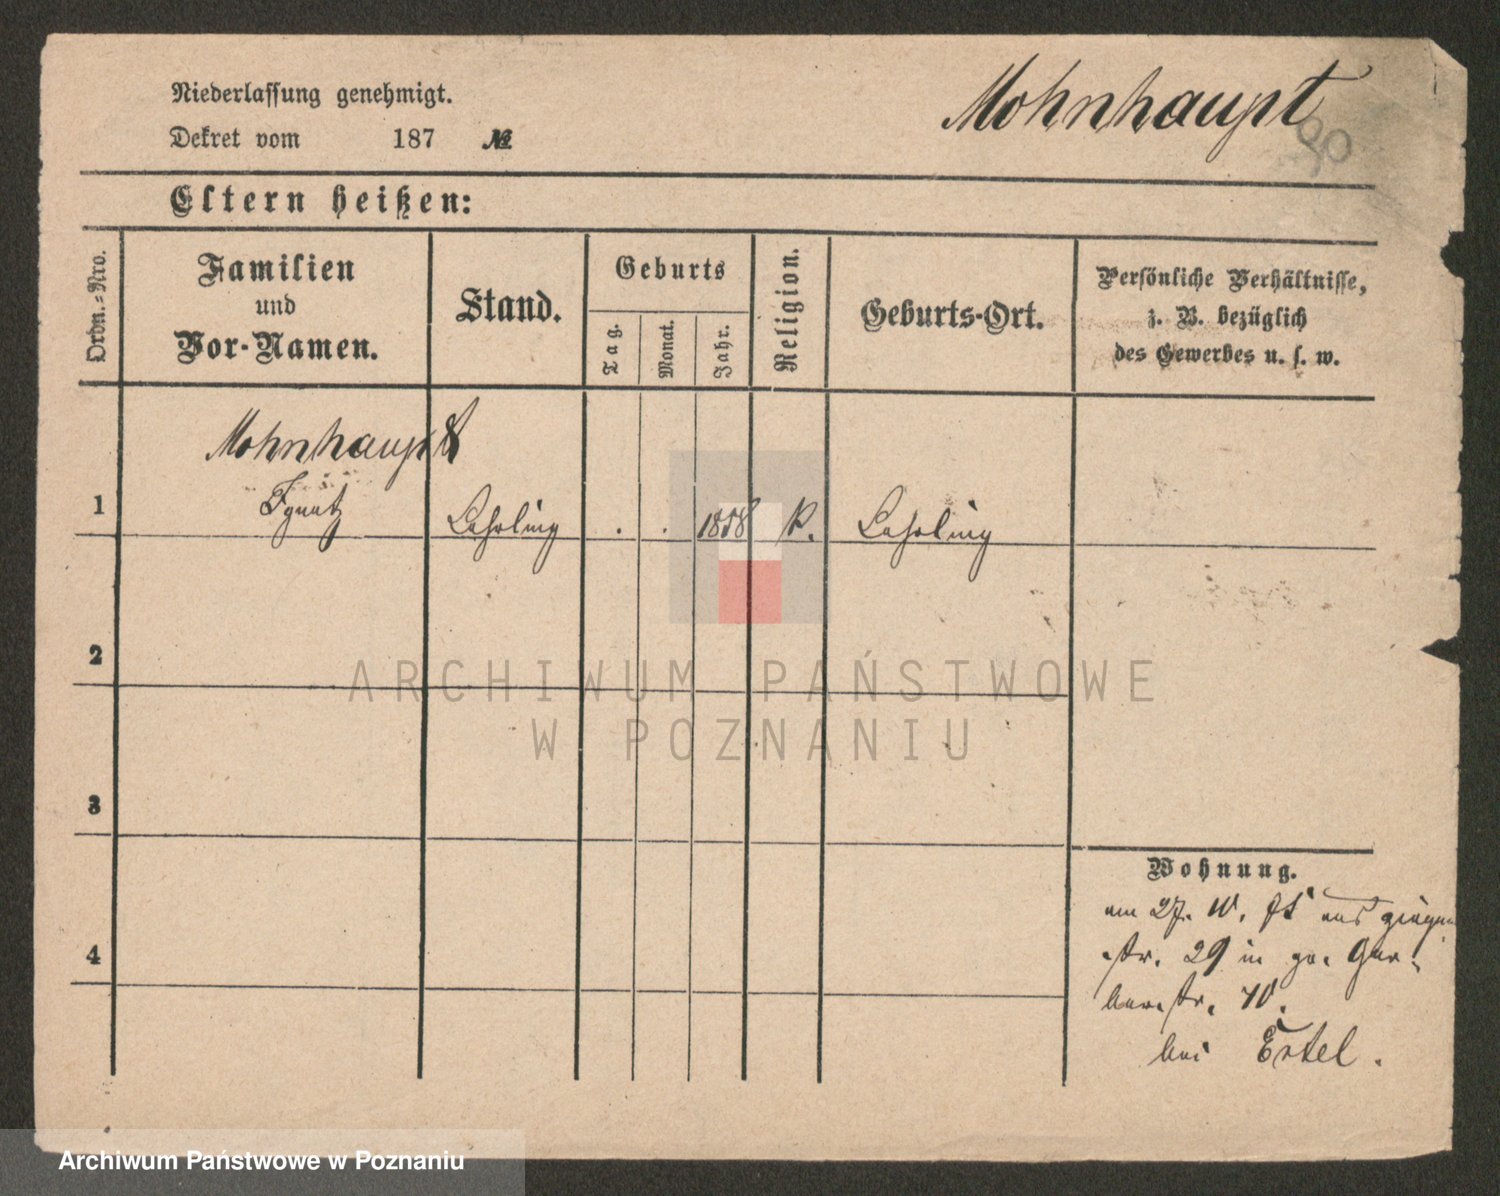 Niederlassung genehmigt.
Dekret vom 187 №
Mohnhaupt
90
Eltern heißen:
Ordn.-Nro.
Familien
und
Vor-Namen.
Stand.
Geburts
Tag.
Monat.
Jahr.
Religion.
Geburts-Ort.
Persönliche Verhältnisse,
z. B. bezüglich
des Gewerbes u. s. w.
Mohnhaupt
1 Ignatz Lehrling . . 1858 k. Lehrling
2
3
4
Wohnung.
am 27. 10. 75 aus
str. 29 in gr. Ger-
berstr. 40.
bei Ertel.
ARCHIWUM PAŃSTWOWE
W POZNANIU
Archiwum Państwowe w Poznaniu